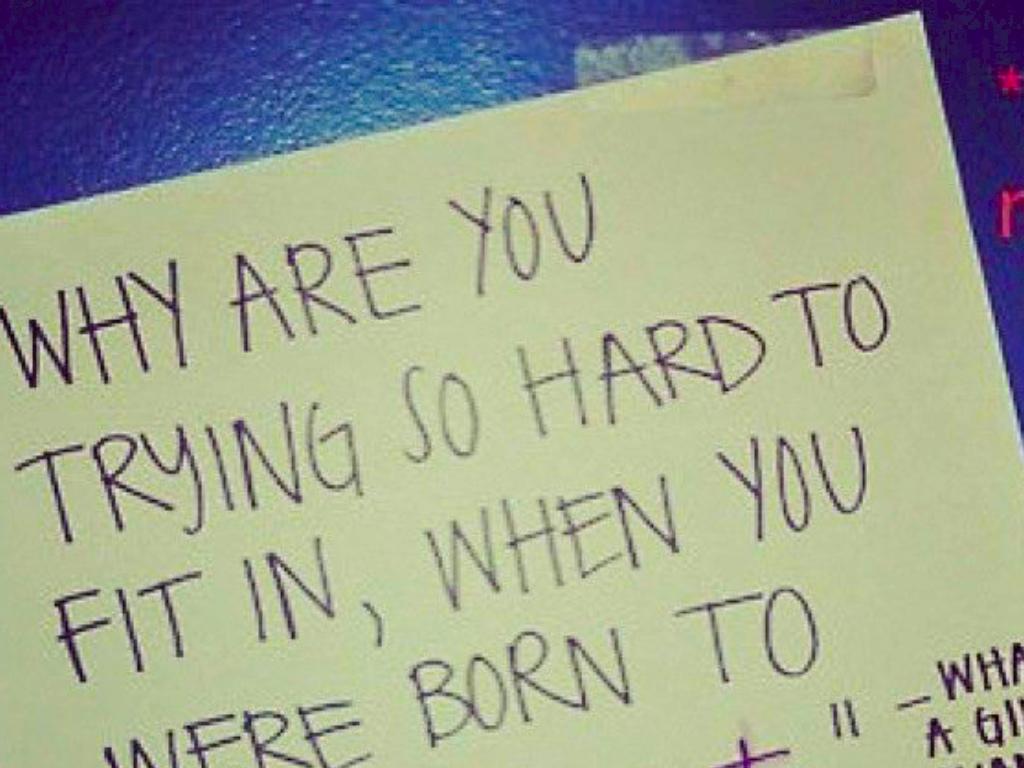 WHY ARE YOU
TRYING SO HARD TO
FIT IN, WHEN YOU
WERE BORN TO
" -
A